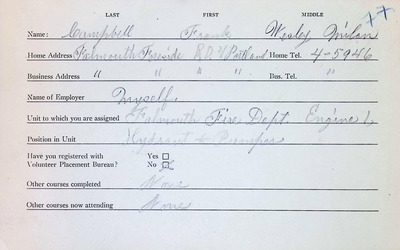 LAST FIRST MIDDLE
Name: Campbell Frank Wesley Milan
Home Address Falmouth Foreside R.D. 4 Portland Home Tel. 4-5946
Business Address " " " " " Bus. Tel. "
Name of Employer Myself.
Unit to which you are assigned Falmouth Fire Dept. Engine 1
Position in Unit Hydrant & Pumper
Have you registered with Yes ☐
Volunteer Placement Bureau? No ☑
Other courses completed None
Other courses now attending None